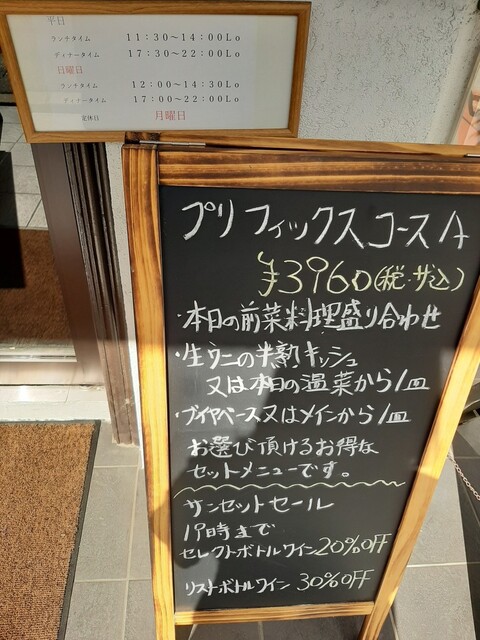 平日
ランチタイム 11:30～14:00Lo
ディナータイム 17:30～22:00Lo
日曜日
ランチタイム 12:00～14:30Lo
ディナータイム 17:00～22:00Lo
定休日 月曜日
プリフィックスコースA
¥3960(税・サ込)
・本日の前菜料理盛り合わせ
・生ウニの半熟キッシュ
又は本日の温菜から1皿
・ブイヤベース又はメインから1皿
お選び頂けるお得な
セットメニューです。
サンセットセール
19時まで
セレクトボトルワイン20%OFF
リストボトルワイン 30%OFF